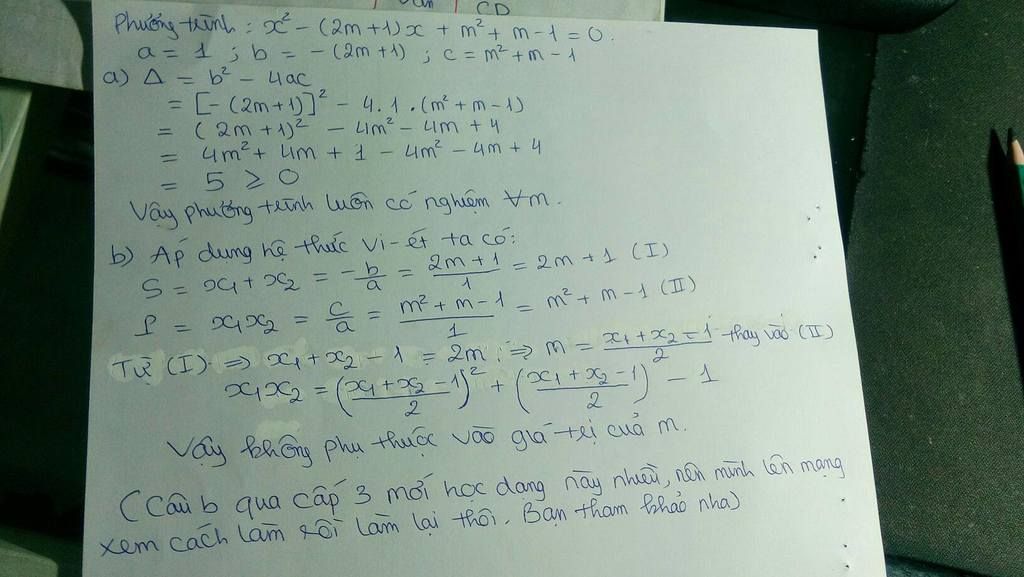 CD
Phương trình: x² - (2m+1)x + m² + m - 1 = 0.
a = 1 ; b = - (2m+1) ; c = m² + m - 1
a) Δ = b² - 4ac
= [-(2m+1)]² - 4.1.(m² + m - 1)
= (2m+1)² - 4m² - 4m + 4
= 4m² + 4m + 1 - 4m² - 4m + 4
= 5 ≥ 0
Vậy phương trình luôn có nghiệm ∀m.
b) Áp dung hệ thức Vi-ét ta có:
S = x₁ + x₂ = -b/a = (2m+1)/1 = 2m + 1 (I)
P = x₁x₂ = c/a = (m² + m - 1)/1 = m² + m - 1 (II)
Từ (I) ⇒ x₁ + x₂ - 1 = 2m ⇒ m = (x₁ + x₂ - 1)/2 thay vào (II)
x₁x₂ = ((x₁ + x₂ - 1)/2)² + ((x₁ + x₂ - 1)/2) - 1
Vậy không phụ thuộc vào giá trị của m.
(Câu b qua cấp 3 mới học dang này nhiều, nên mình lên mạng
xem cách làm rồi làm lại thôi. Bạn tham khảo nha)